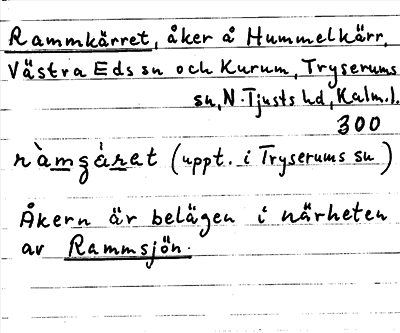 Rammkärret, åker å Hummelkärr,
Västra Eds sn och Kurum, Tryserums
sn, N. Tjusts hd, Kalm. l.
300
ràmgạ̀ret (uppt. i Tryserums sn)
Åkern är belägen i närheten
av Rammsjön.